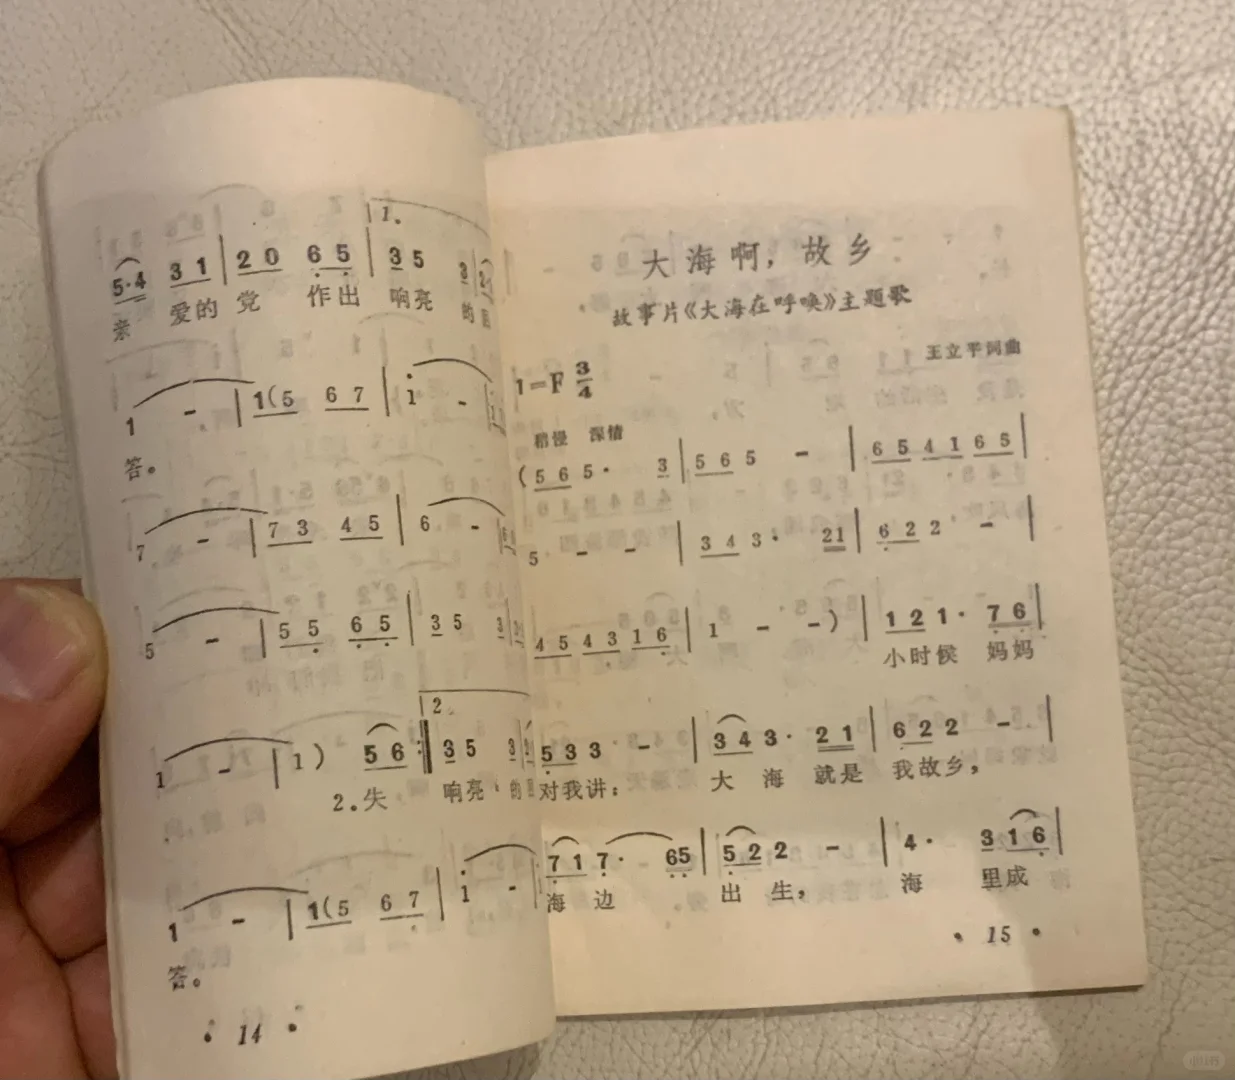 1.
5·4 3 1 | 2 0 6 5 | 3 5 3
亲 爱的 党 作出 响亮 的
1 - | 1(5 6 7 | 1 -
答。
7 - | 7 3 4 5 | 6 -
5 - | 5 5 6 5 | 3 5 3
2.
1 - | 1) 5 6 :| 3 5 3
2.失 响亮 的
1 - | 1(5 6 7 | 1 -
答。
• 14 •
大海啊，故乡
故事片《大海在呼唤》主题歌
王立平词曲
1=F 3/4
稍慢 深情
(5 6 5· 3 | 5 6 5 - | 6 5 4 1 6 5 |
5 - - | 3 4 3· 2 1 | 6 2 2 - |
4 5 4 3 1 6 | 1 - -) | 1 2 1· 7 6 |
小时候 妈妈
5 3 3 - | 3 4 3· 2 1 | 6 2 2 - |
对我讲： 大 海 就是 我故乡，
7 1 7· 6 5 | 5 2 2 - | 4· 3 1 6 |
海 边 出 生， 海 里成
• 15 •